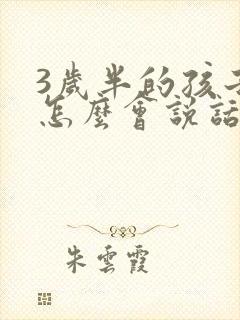 3歲半的孩子
怎麼會說話
朱雲霞